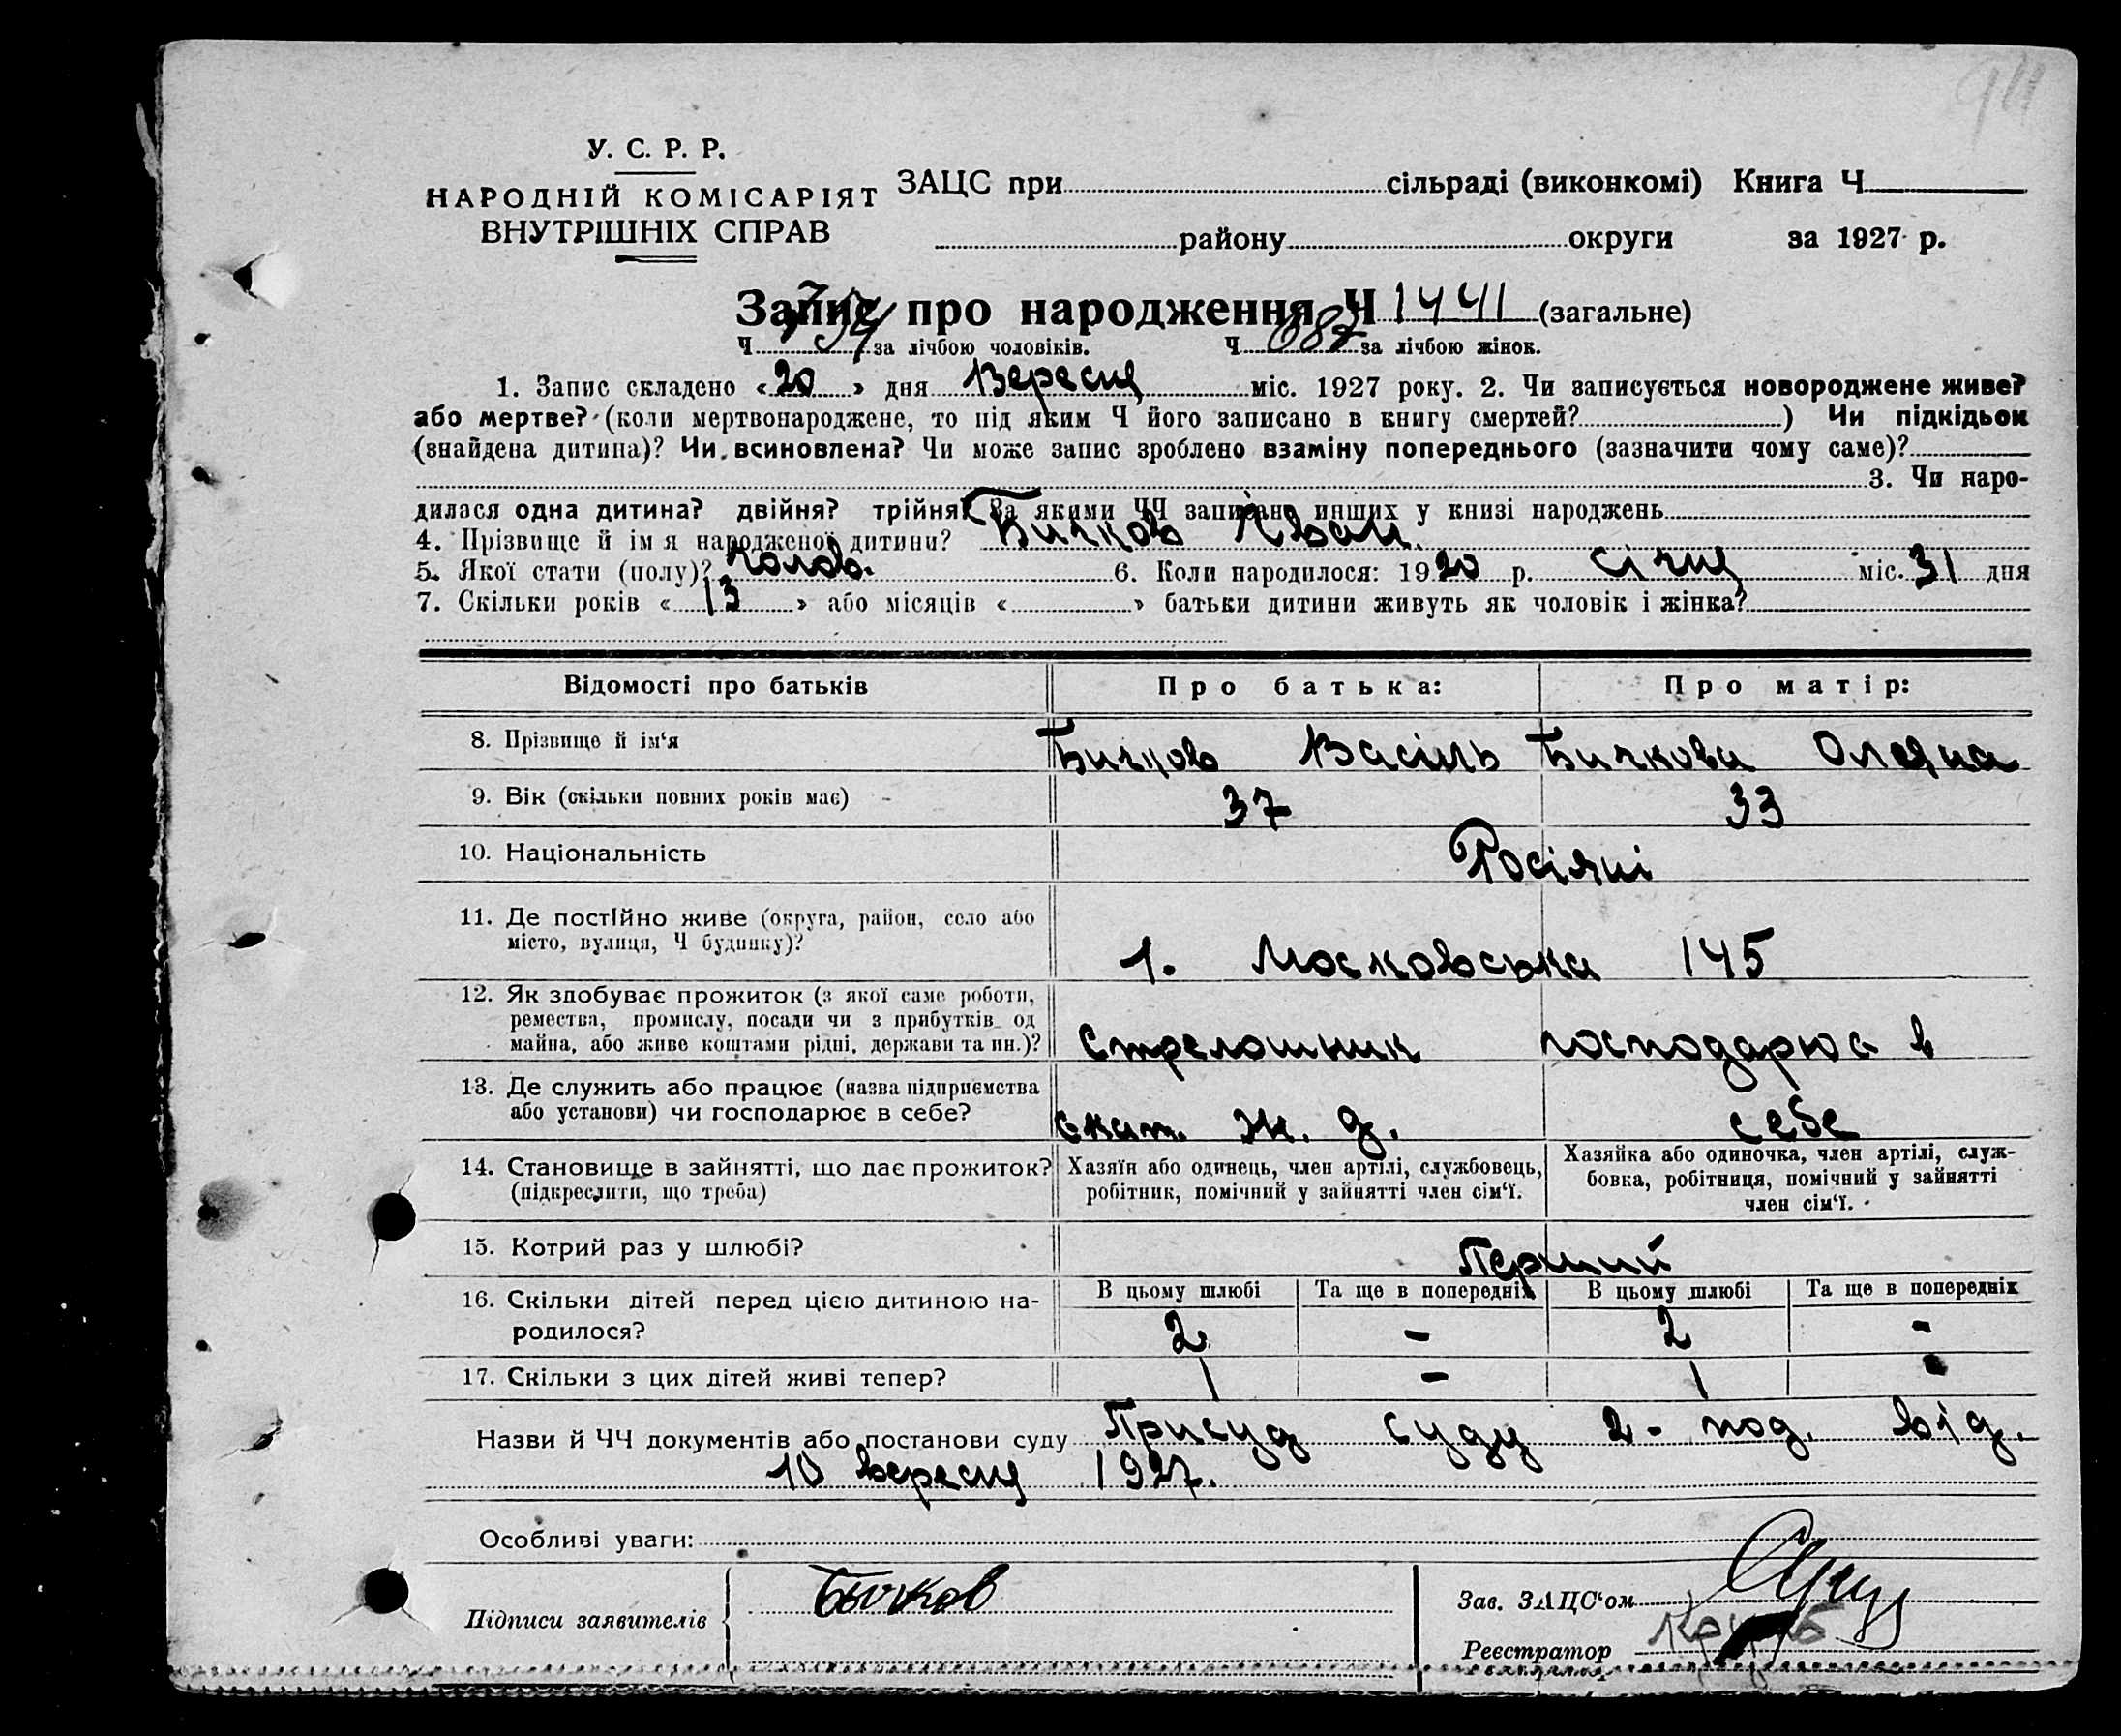 94
У. С. Р. Р.
НАРОДНІЙ КОМІСАРІЯТ
ВНУТРІШНІХ СПРАВ
ЗАЦС при сільраді (виконкомі) Книга Ч
району округи за 1927 р.
Запис про народження Ч 1441 (загальне)
Ч 754 за лічбою чоловіків. Ч 687 за лічбою жінок.
1. Запис складено «20» дня Вересня міс. 1927 року. 2. Чи записується новороджене живе?
або мертве? (коли мертвонароджене, то під яким Ч його записано в книгу смертей? ) Чи підкідьок
(знайдена дитина)? Чи всиновлена? Чи може запис зроблено взаміну попереднього (зазначити чому саме)?
3. Чи наро-
дилася одна дитина? двійня? трійня? За якими ЧЧ записано инших у книзі народжень
4. Прізвище й ім я народженої дитини? Бичков Іван.
5. Якої стати (полу)? чолов. 6. Коли народилося: 1920 р. січня міс. 31 дня
7. Скільки років «13» або місяців « » батьки дитини живуть як чоловік і жінка?
Відомості про батьків Про батька: Про матір:
8. Прізвище й ім‘я Бичков Васіль Бичкова Олена
9. Вік (скільки повних років має) 37 33
10. Національність Росіяні
11. Де постійно живе (округа, район, село або
місто, вулиця, Ч будинку)? 1. Московська 145
12. Як здобуває прожиток (з якої саме роботи,
ремества, промислу, посади чи з прибутків од
майна, або живе коштами рідні, держави та ин.)? Стрелошник господарює в
13. Де служить або працює (назва підприємства
або установи) чи господарює в себе? екат. ж. д. себе
14. Становище в зайнятті, що дає прожиток?
(підкреслити, що треба)
Хазяїн або одинець, член артілі, службовець,
робітник, помічний у зайнятті член сім‘ї.
Хазяйка або одиночка, член артілі, служ-
бовка, робітниця, помічний у зайнятті
член сім‘ї.
15. Котрий раз у шлюбі? Перший
16. Скільки дітей перед цією дитиною на-
родилося?
В цьому шлюбі Та ще в попередніх В цьому шлюбі Та ще в попередніх
2 - 2 -
17. Скільки з цих дітей живі тепер? 1 - 1 -
Назви й ЧЧ документів або постанови суду Присуд суду 2- под. від.
10 вересня 1927.
Особливі уваги:
Підписи заявителів Бычков
Зав. ЗАЦС‘ом
Реєстратор